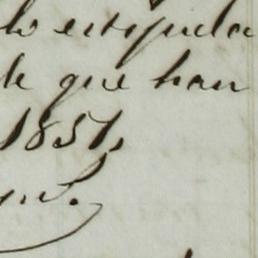 lo estipula
de que han
1851,